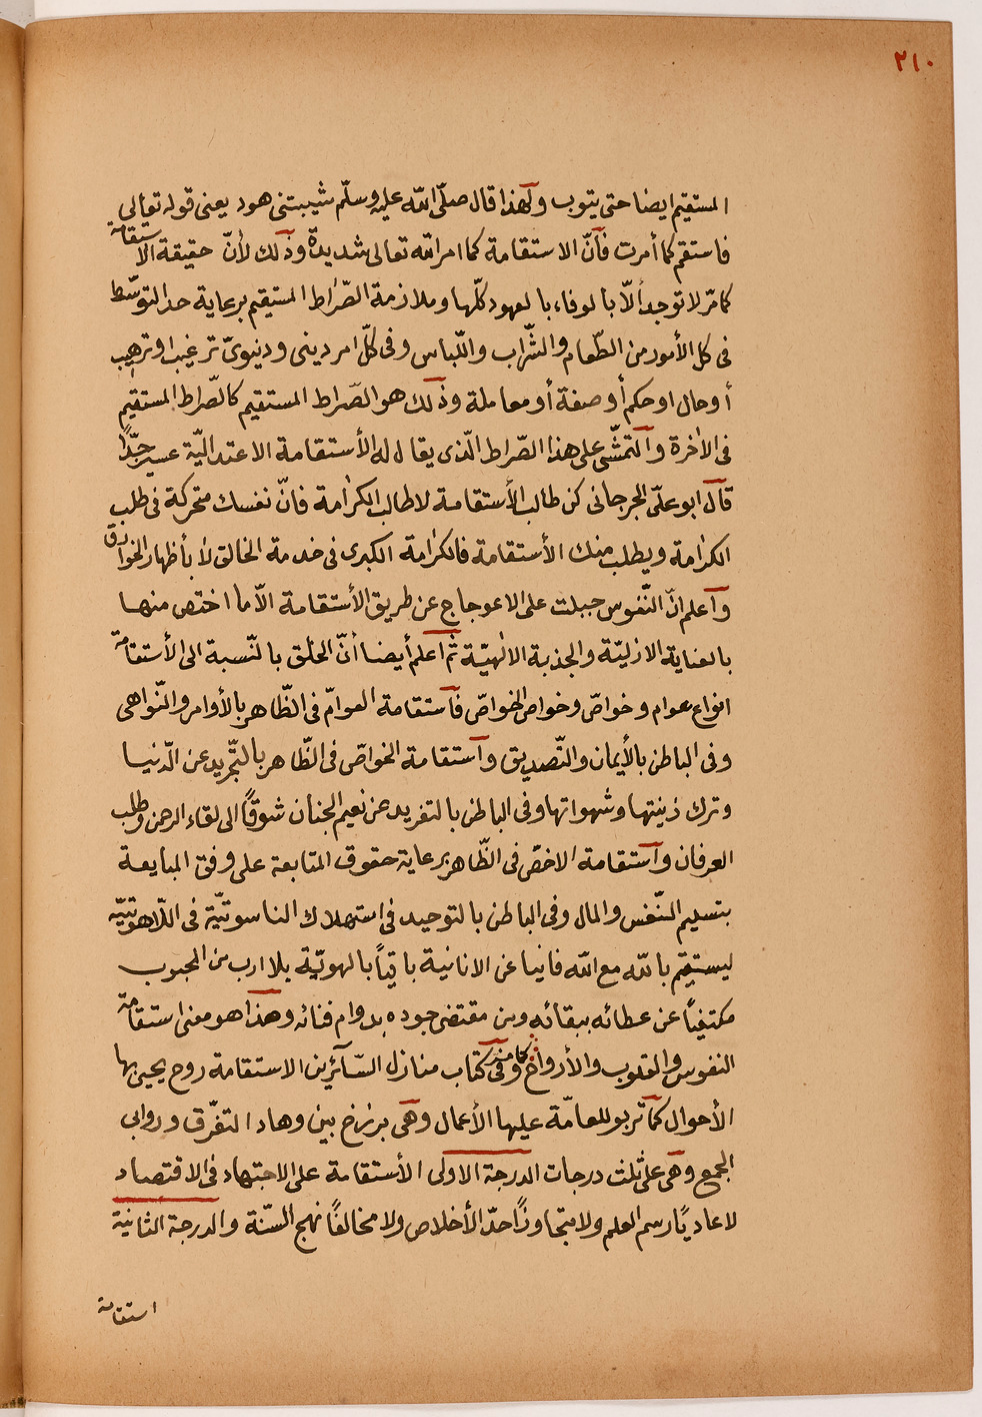 ٢١٠
المستقيم ايضا حتى يتوب ولهذا قال صلّى الله عليه وسلّم شيبتنى هود يعنى قوله تعالى
فاستقم كما أمرت فأنّ الاستقامة كما امر الله تعالى شديدة وذلك لأنّ حقيقة الاستقامة
كما مرّ لا توجد ألّا بالوفاء بالعهود كلّها وملازمة الصّراط المستقيم برعاية حد التوسّط
فى كل الأمور من الطّعام والشّراب واللّباس وفى كلّ امر دينى ودنيوىّ ترغيب اوترهيب
أوحال اوحكم أوصفة أومعاملة وذلك هو الصّراط المستقيم كالصّراط المستقيم
فى الآخرة والتمشّى على هذا الصّراط الّذى يقال له الأستقامة الاعتداليّة عسير جدًّا
قال ابو علىّ الجرجانى كن طالب الأستقامة لا طالب الكرامة فانّ نفسك متحركة فى طلب
الكرامة ويطلب منك الأستقامة فالكرامة الكبرى فى خدمة الخالق لا بأظهار الخوارق
واعلم انّ النّفوس جبلت على الاعوجاج عن طريق الأستقامة الّا ما اختص منها
بالعناية الازليّة والجذبة الالهيّة ثم اعلم أيضا أنّ الخلق بالنّسبة الى الأستقامة
انواع عوام وخواصّ وخواص الخواصّ فاستقامة العوامّ فى الظّاهر بالأوامر والنّواهى
وفى الباطن بالأيمان والتّصديق واستقامة الخواصّ فى الظّاهر بالتّجريد عن الدّنيا
وترك زينتها وشهواتها وفى الباطن بالتفريد عن نعيم الجنان شوقًا الى لقاء الرحمن وطلب
العرفان واستقامة الاخصّ فى الظّاهر برعاية حقوق المتابعة على وفق المبايعة
بتسليم النّفس والمال وفى الباطن بالتوحيد فى استهلاك الناسوتيّة فى اللّاهوتيّه
ليستقيم بالله مع الله فانيا عن الانانية باقياً بالهويّة بلا ارب من المحبوب
مكتفياً عن عطائه ببقائه ومن مقتضى جوده بدوام فنائه وهذا هو معنى استقامة
النفوس والقلوب والأرواح كامر وفى كتاب منازل السّائرين الاستقامة روح يحيى بها
الأحوال كما تربو للعامّة عليها الأعمال وهى برزخ بين وهاد التفرّق وروابى
الجمع وهى على ثلث درجات الدرجة الاولى الأستقامة على الاجتهاد فى الاقتصاد
لا عاديًا رسم العلم ولا متجاوزًا حدّ الأخلاص ولا مخالفًا نهج السّنة والدرجة الثانية
استقامة